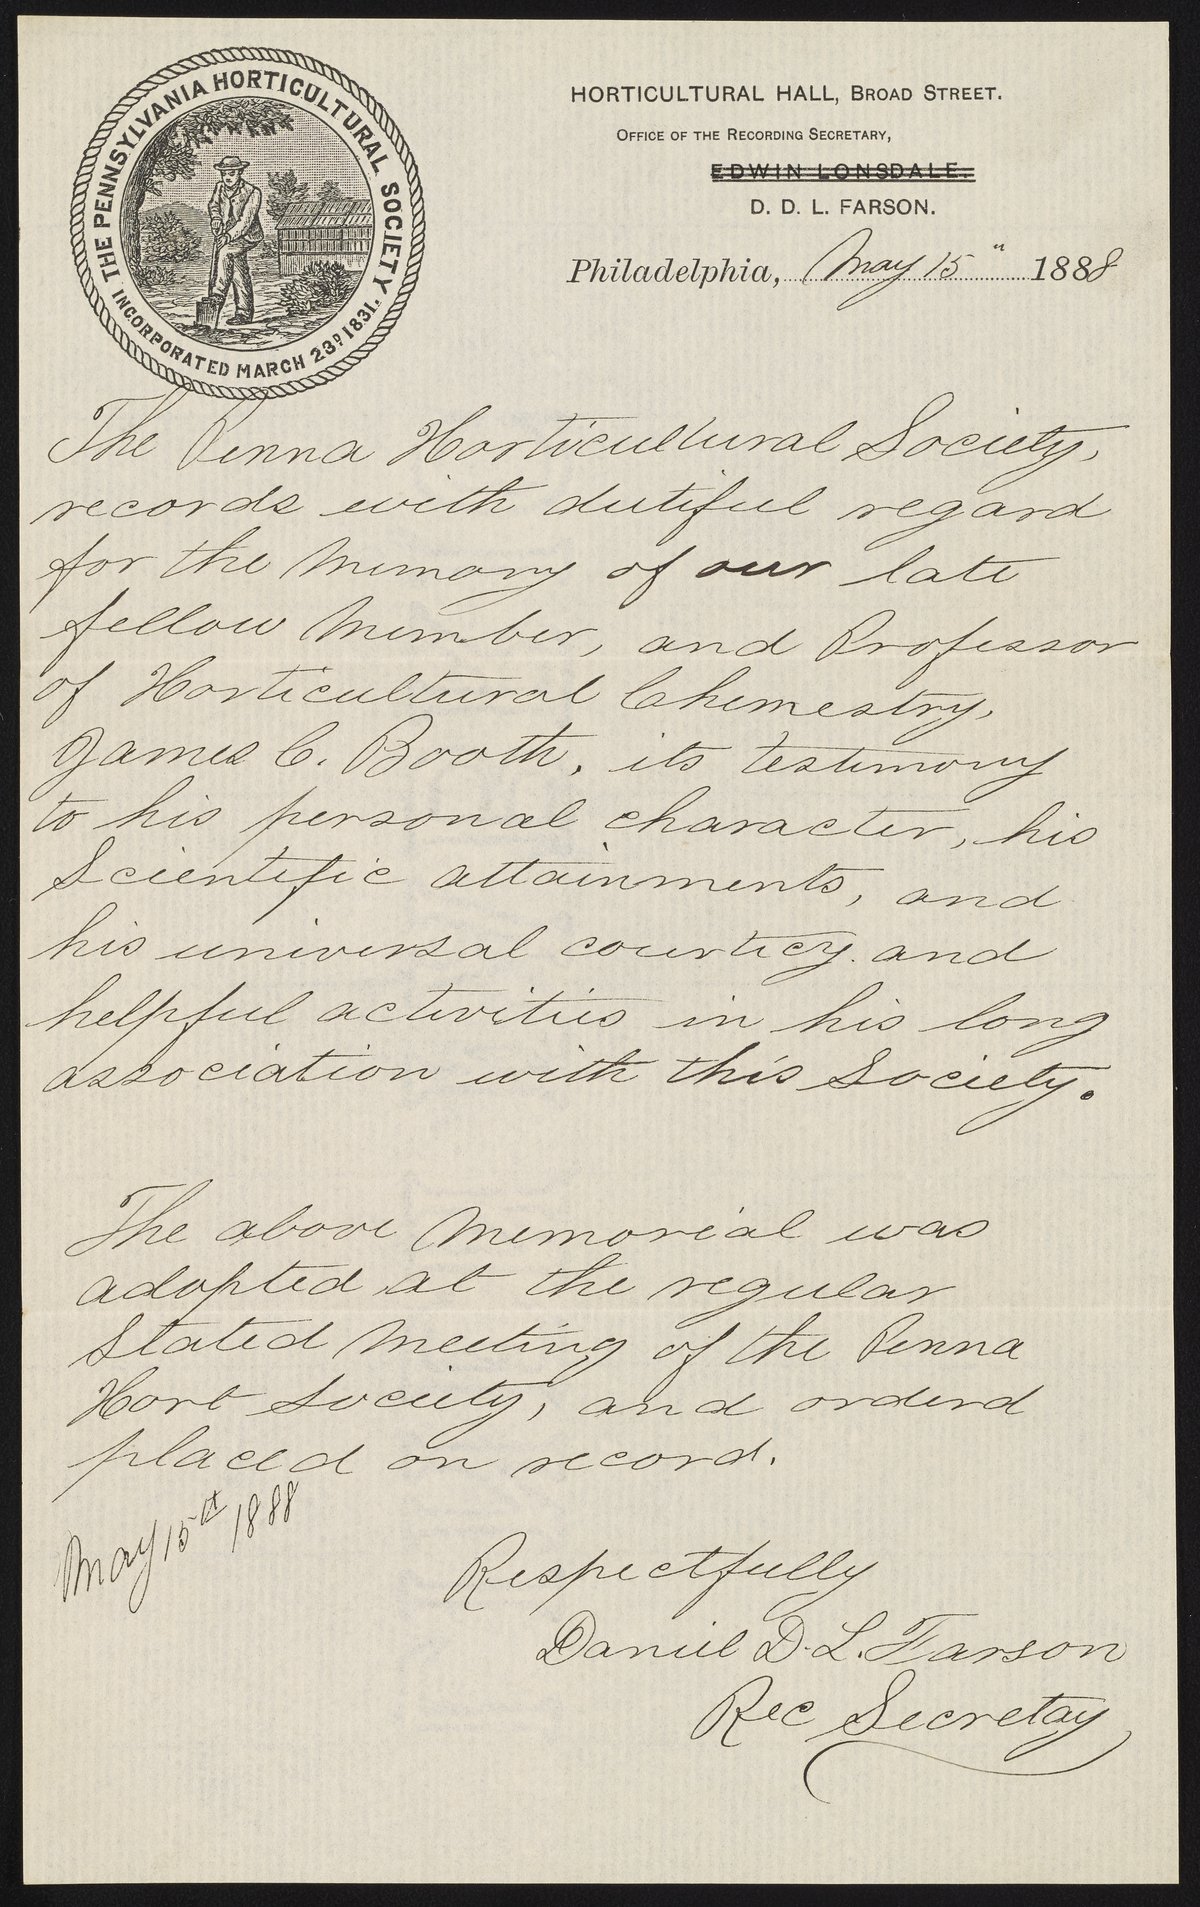 THE PENNSYLVANIA HORTICULTURAL SOCIETY
INCORPORATED MARCH 23D 1831.
HORTICULTURAL HALL, BROAD STREET.
OFFICE OF THE RECORDING SECRETARY,
EDWIN LONSDALE.
D. D. L. FARSON.
Philadelphia, May 15" 1888
The Penna Horticultural Society,
records with dutiful regard
for the Memory of our late
fellow Member, and Professor
of Horticultural Chemestry,
James C. Booth, its testimony
to his personal character, his
Scientific attainments, and
his universal courticy and
helpful activities in his long
association with this Society.
The above Memorial was
adopted at the regular
Stated Meeting of the Penna
Hort Society, and orderd
placed on record.
May 15th 1888
Respectfully
Daniel D. L. Farson
Rec Secretay